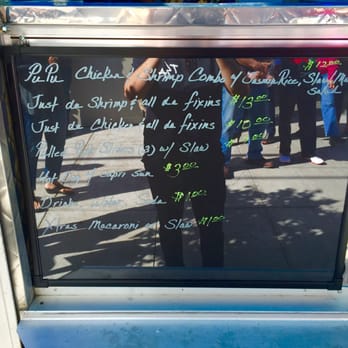 PuPu Chicken & Shrimp Combo w/ Jasmin Rice, Slaw/Mac Salad $12.00
Just da Shrimp & all da fixins $13.00
Just da Chicken & all da fixins $10.00
Pulled (3) w/ Slaw
Hot Dog & Capri Sun $3.00
Drinks Water, Soda $1.00
Xtras Macaroni or Slaw $1.00